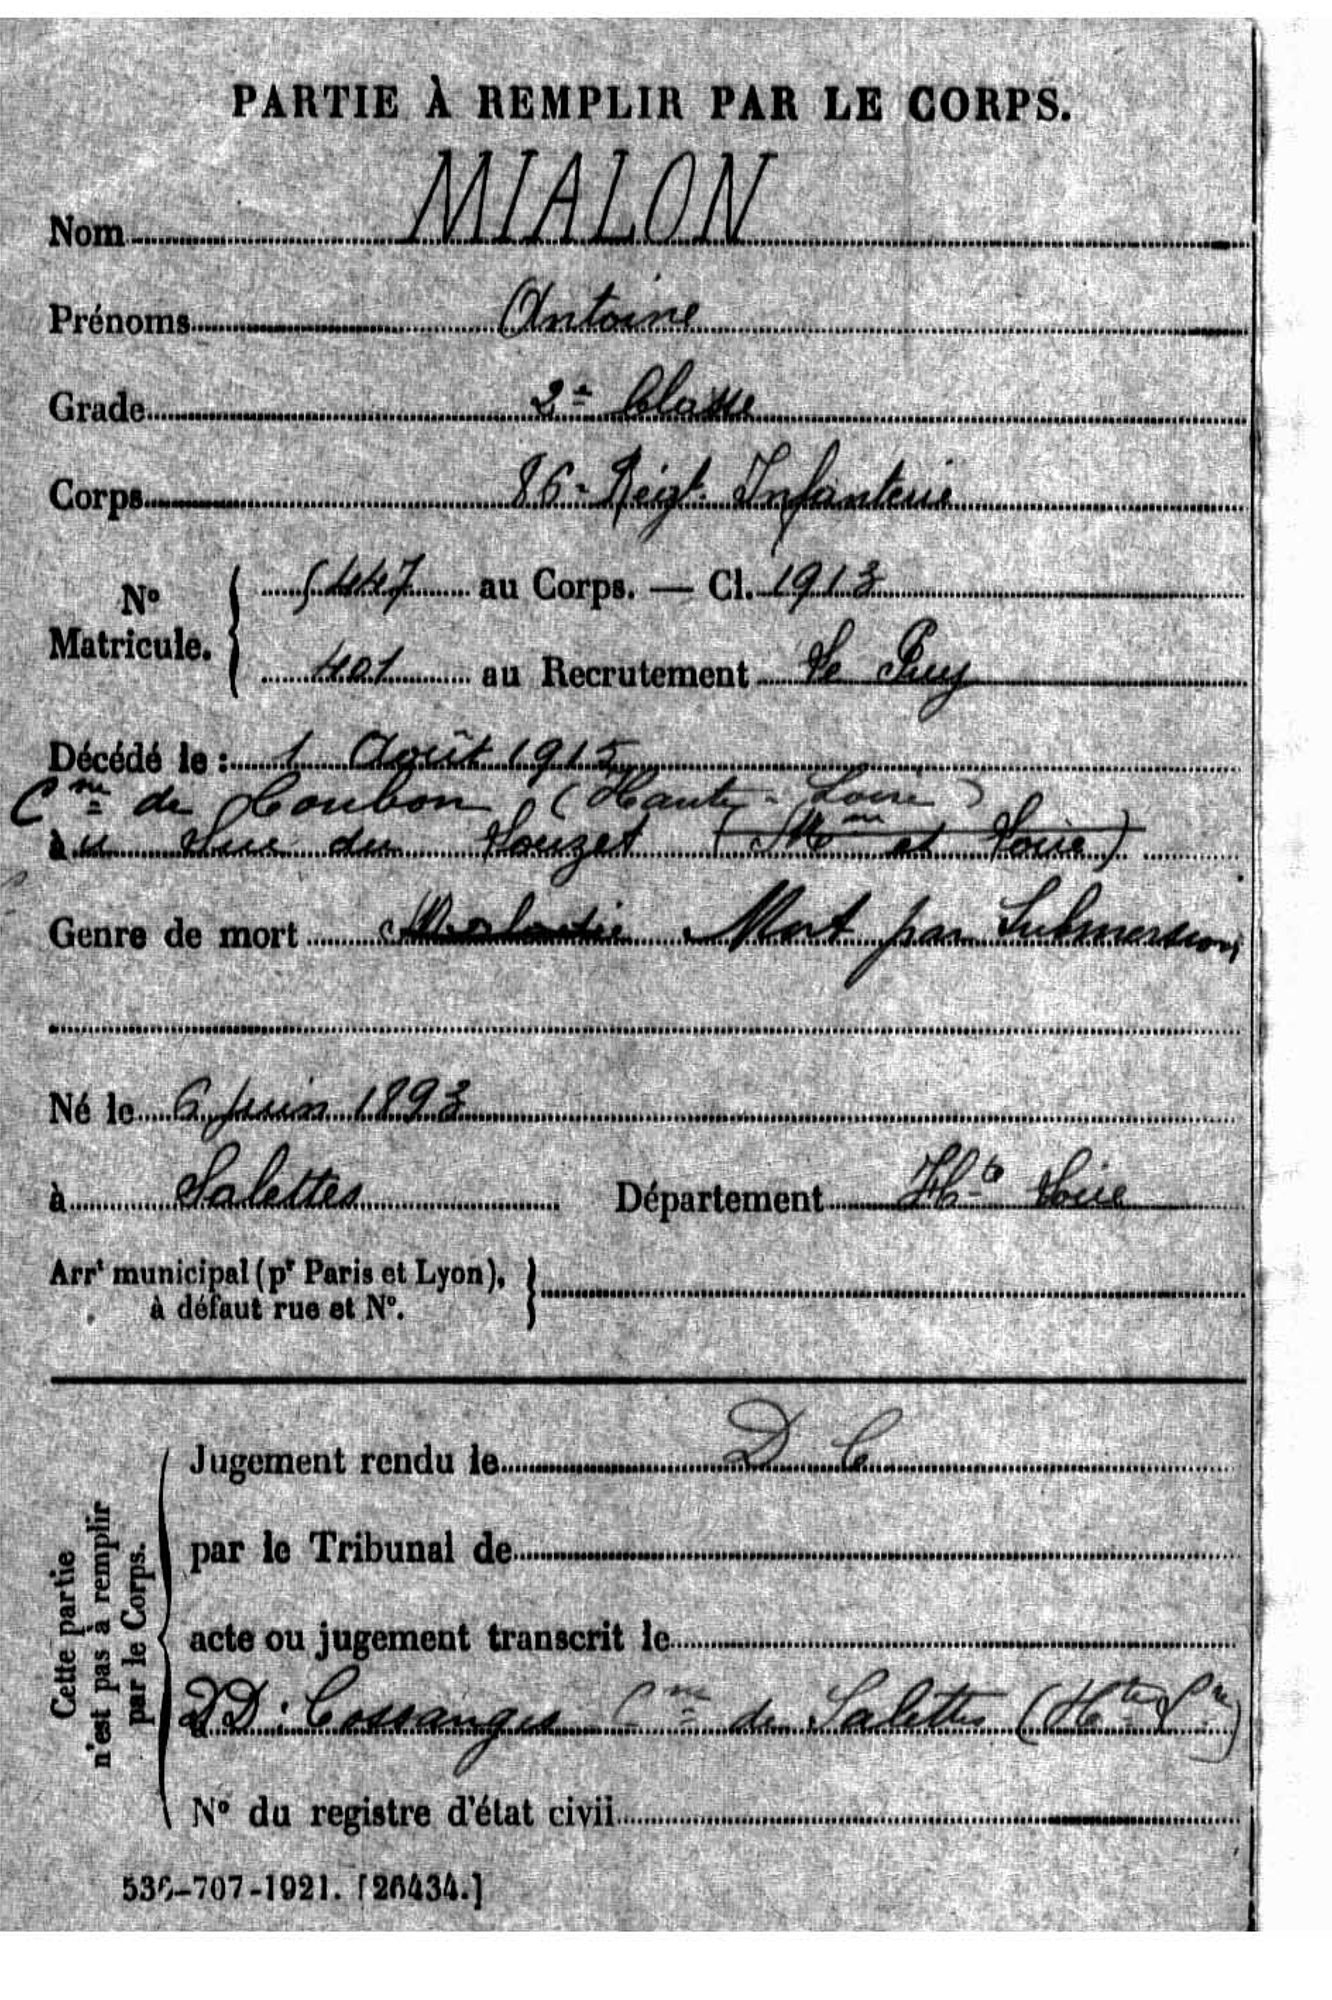 PARTIE À REMPLIR PAR LE CORPS.
Nom MIALON
Prénoms Antoine
Grade 2e Classe
Corps 86e Régt. Infanterie
No Matricule. 5447 au Corps. — Cl. 1913
401 au Recrutement Le Puy
Décédé le : 1 Août 1915
Cne de Coubon (Haute-Loire)
à u du (Hte et Loire)
Genre de mort Maladie Mort par Submersion
Né le 6 juin 1893
à Salettes Département Hte Loire
Arrt municipal (pr Paris et Lyon),
à défaut rue et No.
Cette partie
n'est pas à remplir
par le Corps.
Jugement rendu le D C
par le Tribunal de
acte ou jugement transcrit le
à DD : Cossanges Cne de Salettes (Hte Lre)
No du registre d'état civil
536-707-1921. [26434.]